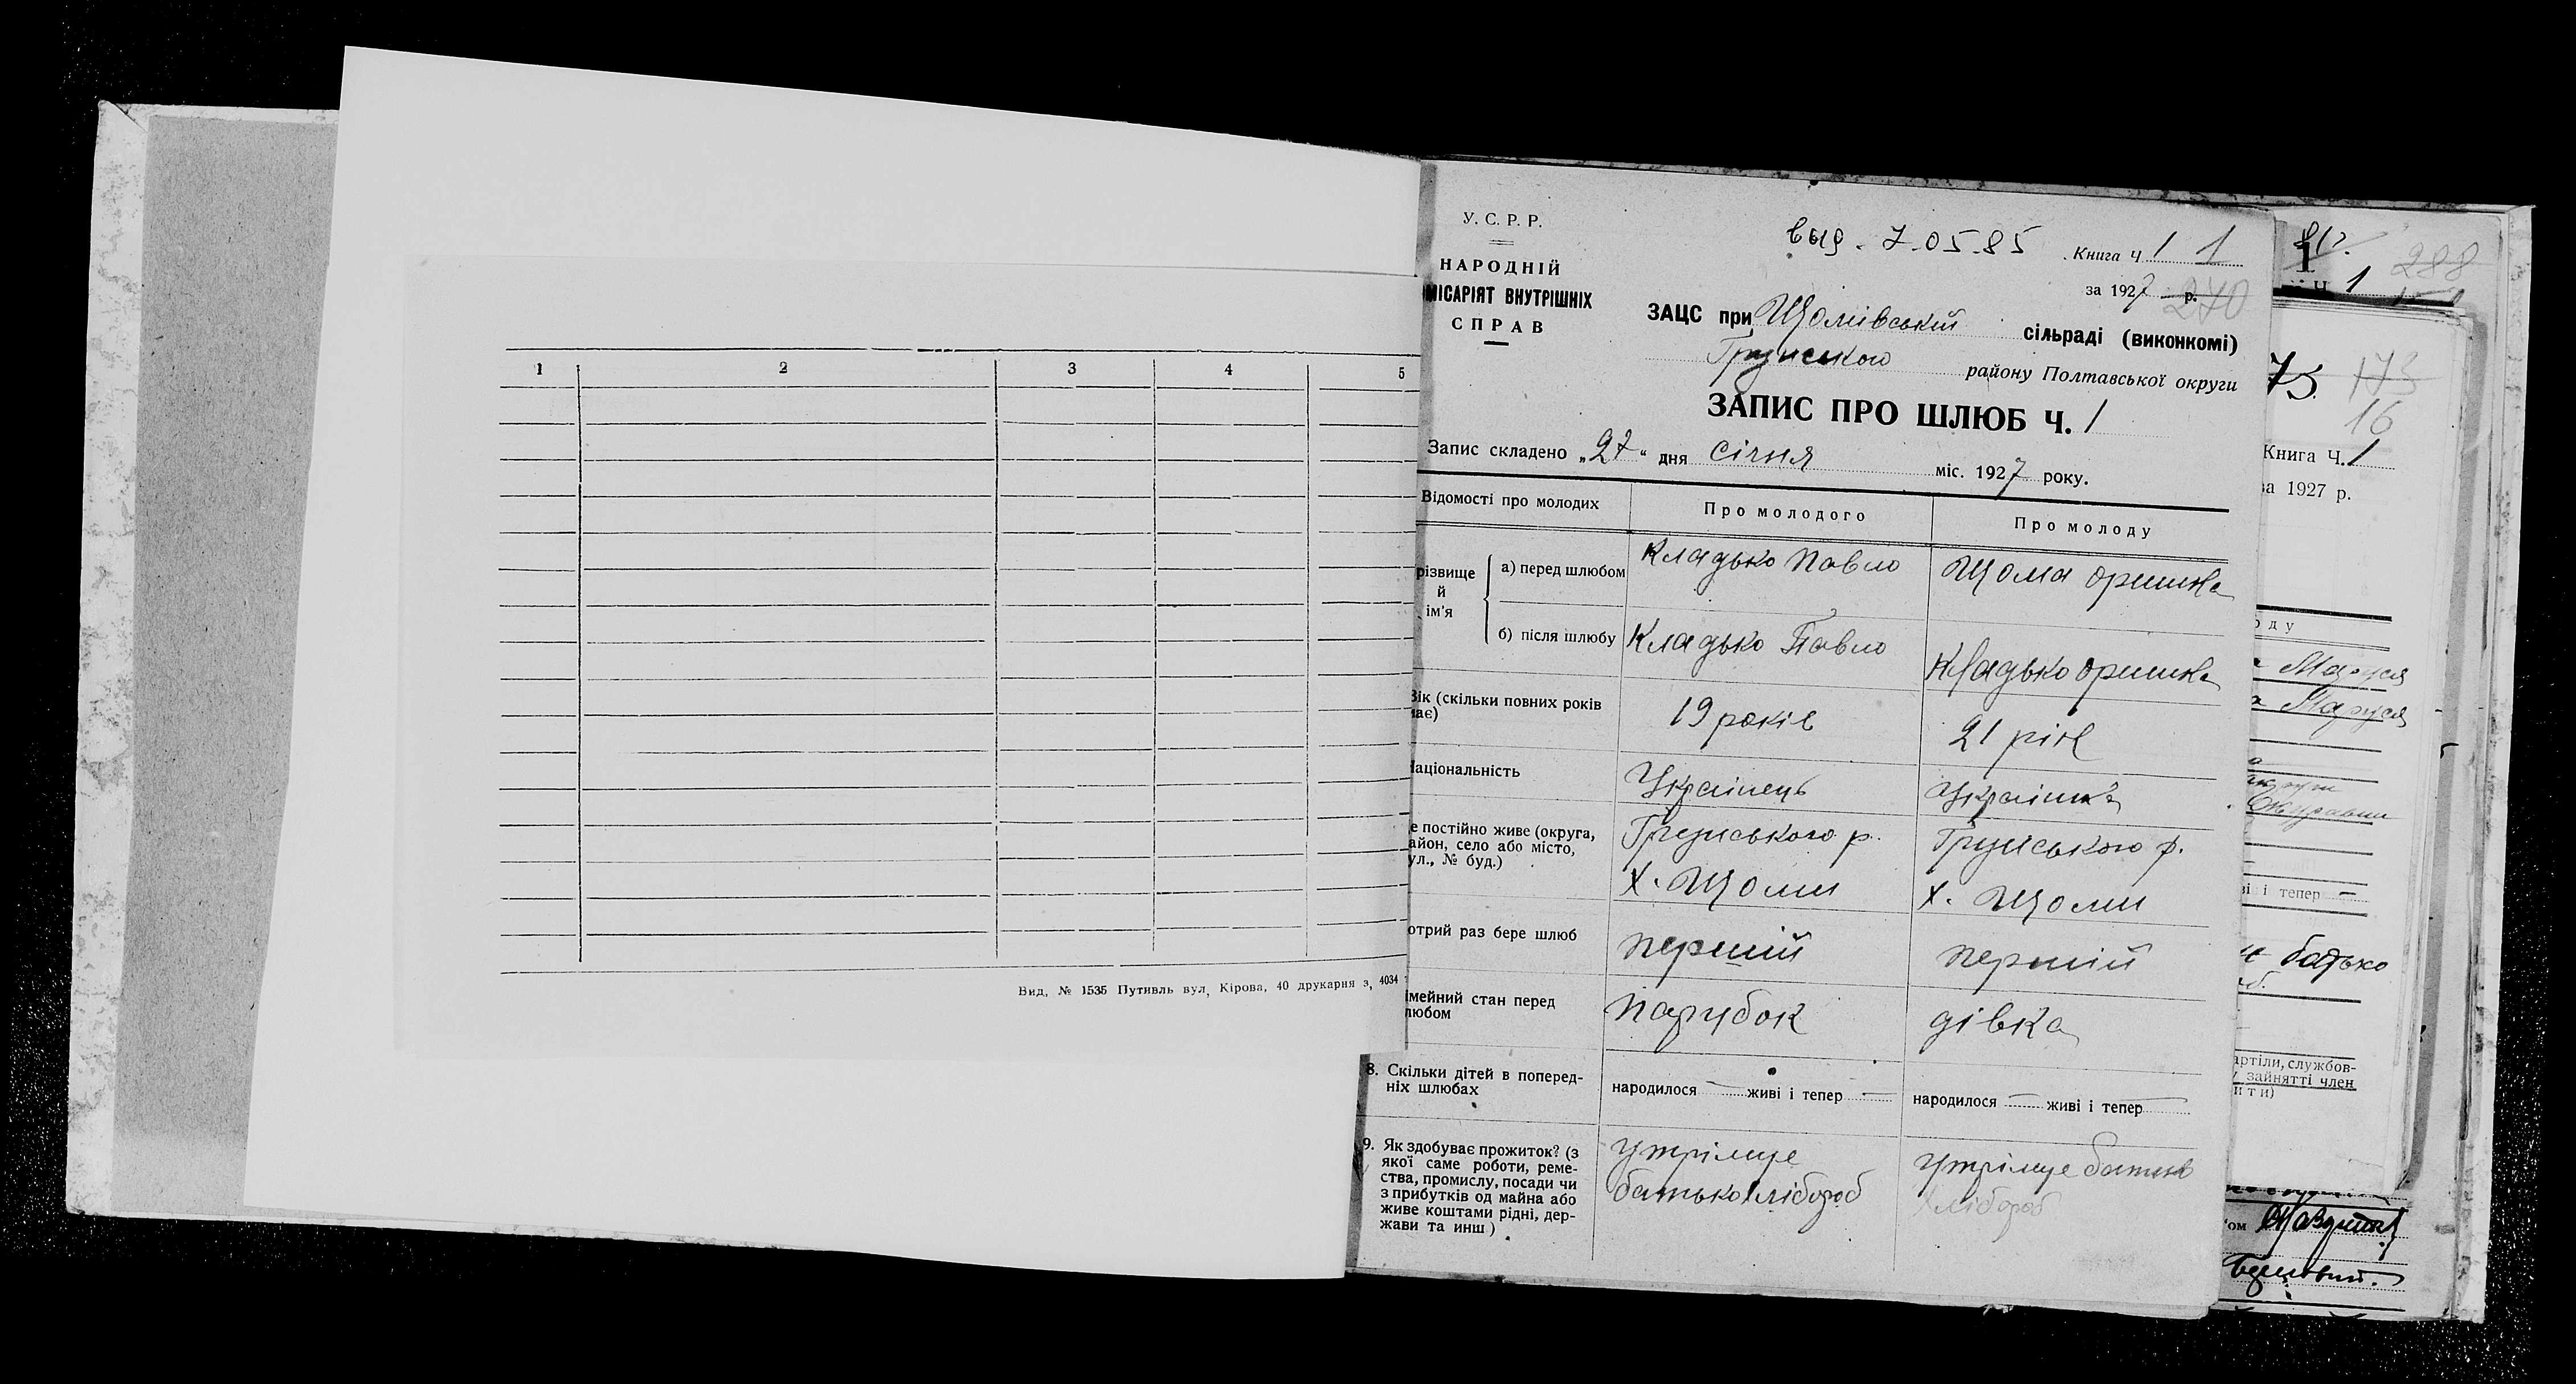 1 2 3 4 5
Вид. № 1535 Путивль вул, Кірова, 40 друкарня з, 4034
У. С. Р. Р.
НАРОДНІЙ
МІСАРІЯТ ВНУТРІШНІХ
СПРАВ
выд. 7-05-85
Книга Ч 1 1
за 1927 р.
270
ЗАЦС при Щомівській сільраді (виконкомі)
Грунського району Полтавської округи
ЗАПИС ПРО ШЛЮБ Ч. 1
Запис складено „27“ дня січня міс. 1927 року.
Відомості про молодих Про молодого Про молоду
різвище
й
ім'я
а) перед шлюбом Кладько Павло Щома Оришка
б) після шлюбу Кладько Павло Кладько Оришка
Вік (скільки повних років
має) 19 років 21 рік
національність Українець Українка
е постійно живе (округа,
айон, село або місто,
ул., № буд.)
Грунського р. Грунського р.
Х. Щоми Х. Щоми
отрий раз бере шлюб першій першій
імейний стан перед
любом парубок дівка
8. Скільки дітей в поперед-
ніх шлюбах
народилося — живі і тепер — народилося — живі і тепер —
9. Як здобуває прожиток? (з
якої саме роботи, реме-
ства, промислу, посади чи
з прибутків од майна або
живе коштами рідні, дер-
жави та инш)
утрімує
батько хлібороб
утрімує батько
хлібороб
1
288
Ч. 1
75. 173
16
Книга Ч. 1
за 1927 р.
оду
Маруся
Маруся
ві і тепер —
батько
артіли, службов-
зайнятті член
ити)
'ом